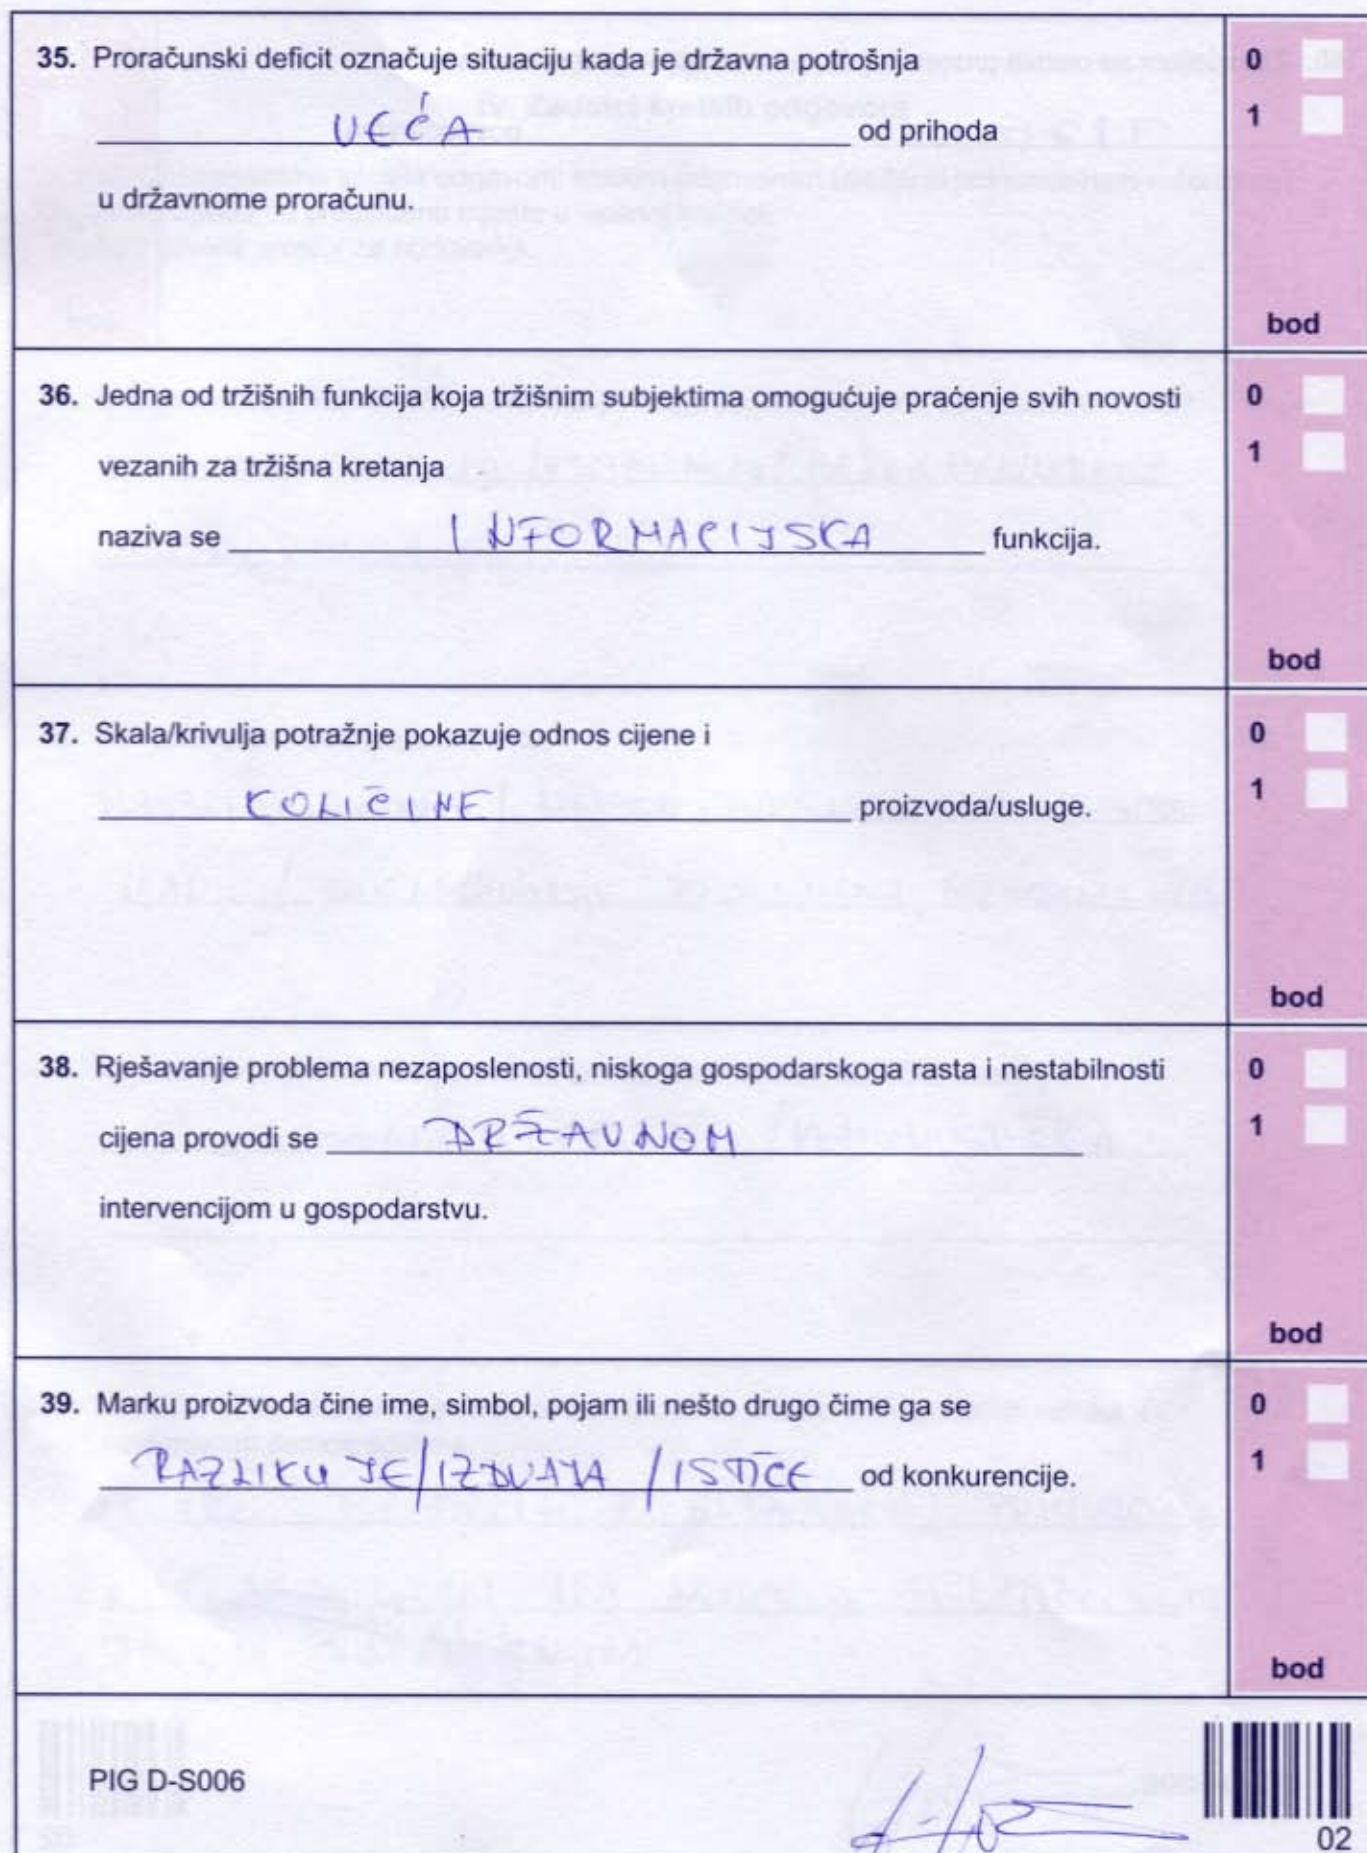 35. Proračunski deficit označuje situaciju kada je državna potrošnja
VEĆA od prihoda
u državnome proračunu.
0
1
bod
36. Jedna od tržišnih funkcija koja tržišnim subjektima omogućuje praćenje svih novosti
vezanih za tržišna kretanja
naziva se INFORMACIJSKA funkcija.
0
1
bod
37. Skala/krivulja potražnje pokazuje odnos cijene i
KOLIČINE proizvoda/usluge.
0
1
bod
38. Rješavanje problema nezaposlenosti, niskoga gospodarskoga rasta i nestabilnosti
cijena provodi se DRŽAVNOM
intervencijom u gospodarstvu.
0
1
bod
39. Marku proizvoda čine ime, simbol, pojam ili nešto drugo čime ga se
RAZLIKUJE/IZDVAJA /ISTIČE od konkurencije.
0
1
bod
PIG D-S006
02